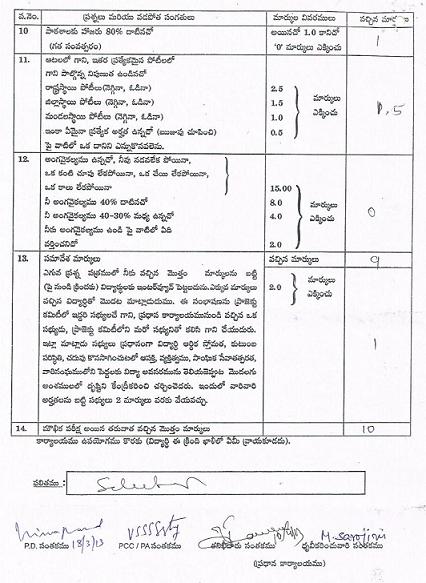 ప.నెం. ప్రశ్నలు మరియు వడపోత సంగతులు మార్కుల వివరములు వచ్చిన మార్కులు
10 పాఠశాలకు హాజరు 80% దాటినచో అయినచో 1.0 కానిచో 1
(గత సంవత్సరం) '0' మార్కులు ఎక్కించు
11. ఆటలలో గాని, ఇతర ప్రత్యేకమైన పోటీలలో
గాని పాల్గొన్న నిపుణత ఉండినచో
రాష్ట్రస్థాయి పోటీలు(నెగ్గినా, ఓడినా) 2.5
జిల్లాస్థాయి పోటీలు(నెగ్గినా, ఓడినా) 1.5 మార్కులు
మండలస్థాయి పోటీలు (నెగ్గినా, ఓడినా) 1.0 ఎక్కించు
ఇంకా ఏమైనా ప్రత్యేక అర్హత ఉన్నచో (ఋజువు చూపించి) 0.5
పై వాటిలో ఒక దానిని ఎన్నుకొనవలెను.
12. అంగవైకల్యము ఉన్నచో, నీవు నడవలేక పోయినా,
ఒక కంటి చూపు లేకపోయినా, ఒక చేయి లేకపోయినా,
ఒక కాలు లేకపోయినా 15.00
నీ అంగవైకల్యము 40% దాటినచో 8.0 మార్కులు
నీ అంగవైకల్యము 40-30% మధ్య ఉన్నచో 4.0 ఎక్కించు 0
నీకు అంగవైకల్యము ఉండి పై వాటిలో ఏది
వర్తించనిచో 2.0
13. సమావేశ మార్కులు వచ్చిన మార్కులు 9
ఎగువ ప్రశ్న పత్రములో నీకు వచ్చిన మొత్తం మార్కులను బట్టి మార్కులు
(పై నుండి క్రిందకు) విద్యార్థులకు ఇంటర్‌వ్యూర్ పెట్టబడును.ఎక్కువ మార్కులు 2.0 ఎక్కించు
వచ్చిన విద్యార్థితో మొదట మాట్లాడుదుము. ఈ సంభాషణను ప్రాజెక్టు
కమిటీలో ఇద్దరి సభ్యులచే గాని, ప్రధాన కార్యాలయమునుండి వచ్చిన ఒక
సభ్యుడు, ప్రాజెక్టు కమిటీలోని మరో సభ్యునితో కలిసి గాని చేయుదురు.
ఇట్లా మాట్లాడు సభ్యులు ప్రధానంగా విద్యార్థి ఆర్థిక స్తోమత, కుటుంబ 1
పరిస్థితి, చదువు కొనసాగించుటలో ఆసక్తి, వ్యక్తిత్వము, సాంఘిక సేవాతత్పరత,
వారిసంఘములోని పెద్దలకు విద్యా అవసరమును తెలియజెప్పుట మొదలగు
అంశములలో దృష్టిని కేంద్రీకరించి చర్చించెదరు. ఇందులో వారివారి
అర్హతలను బట్టి సభ్యులు 2 మార్కులు వరకు వేయవచ్చు.
14. మౌఖిక పరీక్ష అయిన తరువాత వచ్చిన మొత్తం మార్కులు 10
కార్యాలయము ఉపయోగము కొరకు (విద్యార్థి ఈ క్రింది ఖాళీలో ఏమీ వ్రాయకూడదు).
ఫలితము :
M. Sarojini
P.D. సంతకము 18/3/13 PCC / PA సంతకము తనిఖీదారు సంతకము ధృవీకరించువారి సంతకము
(ప్రధాన కార్యాలయము)